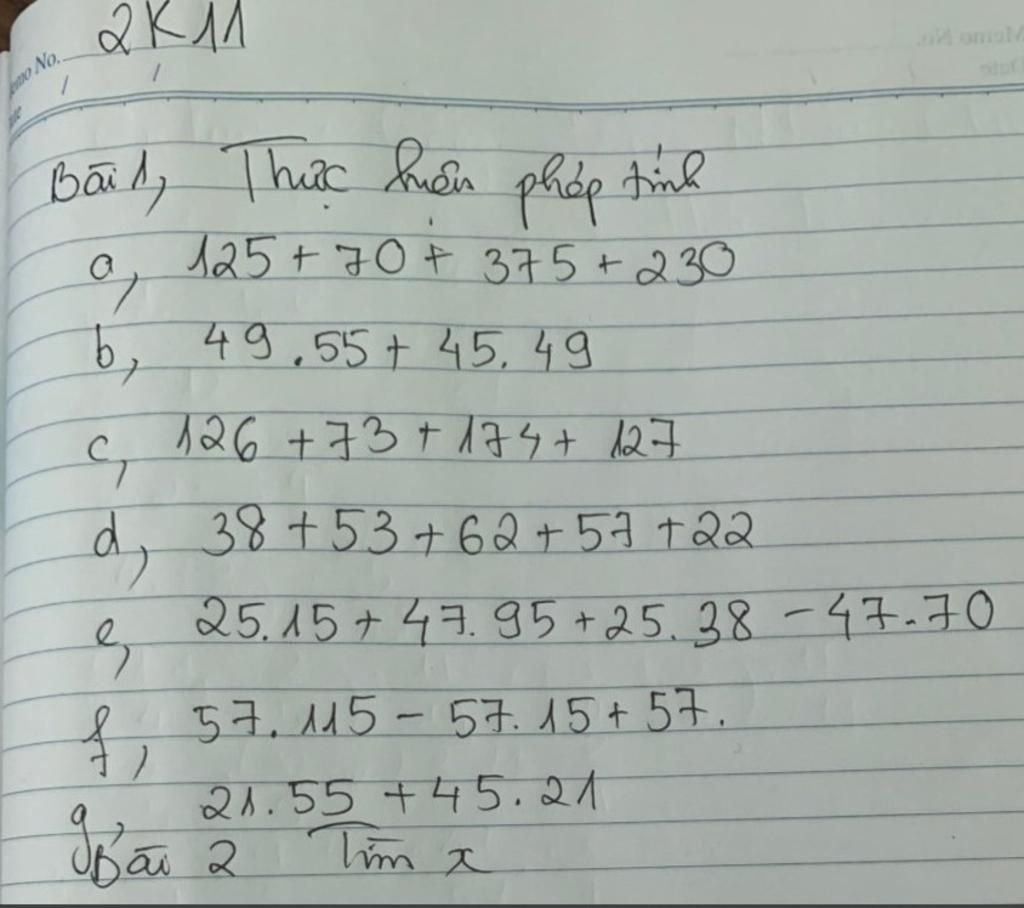 Memo No. 2K11
/ /
Bài 1, Thực hiện phép tính
a, 125 + 70 + 375 + 230
b, 49 . 55 + 45 . 49
c, 126 + 73 + 174 + 127
d, 38 + 53 + 62 + 57 + 22
e, 25 . 15 + 47 . 95 + 25 . 38 - 47 . 70
f, 57 . 115 - 57 . 15 + 57 .
g, 21 . 55 + 45 . 21
Bài 2 Tìm x